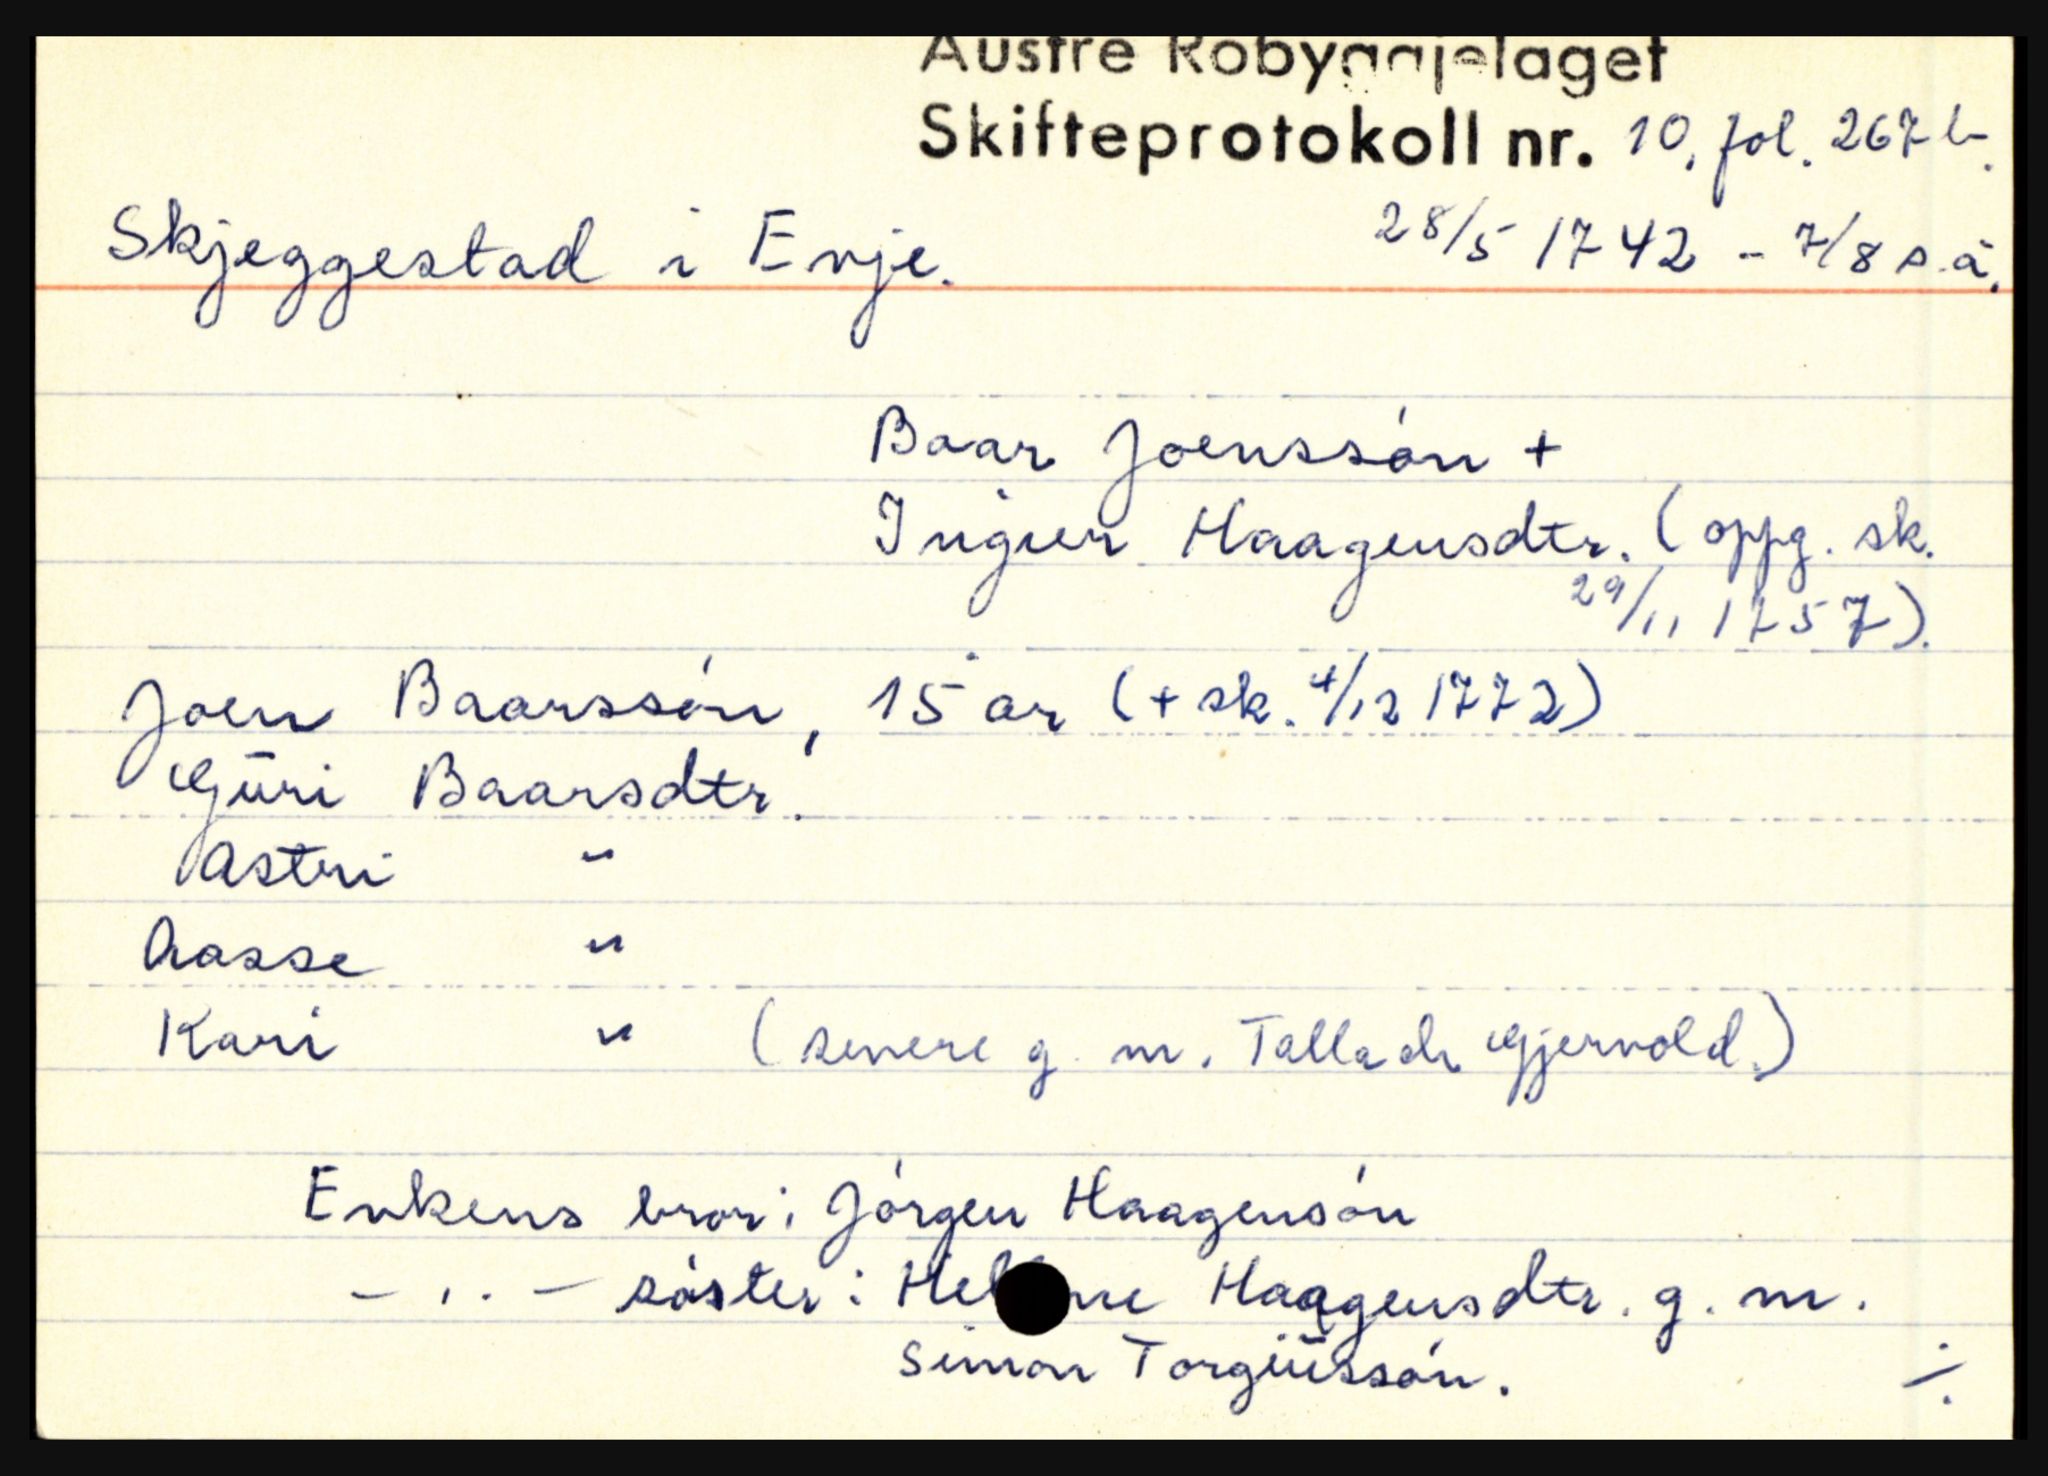 Austre Robyggjelaget
Skifteprotokoll nr. 10, fol. 267 b.
Skjeggestad i Evje. 28/5 1742 - 7/8 s.å.
Baar Joenssón +
Ingier Haagensdtr. (oppg. sk.
29/11 1757).
Joen Baarssón, 15 år (+ sk. 4/12 1772)
Gŭri Baarsdtr.
Astri "
Aasse "
Kari " (senere g. m. Tallach Gjervold.)
Enkens bror: Jórgen Haagensón
- " - sóster: Haagensdtr. g. m.
Simon Torgiŭssón.
·/.